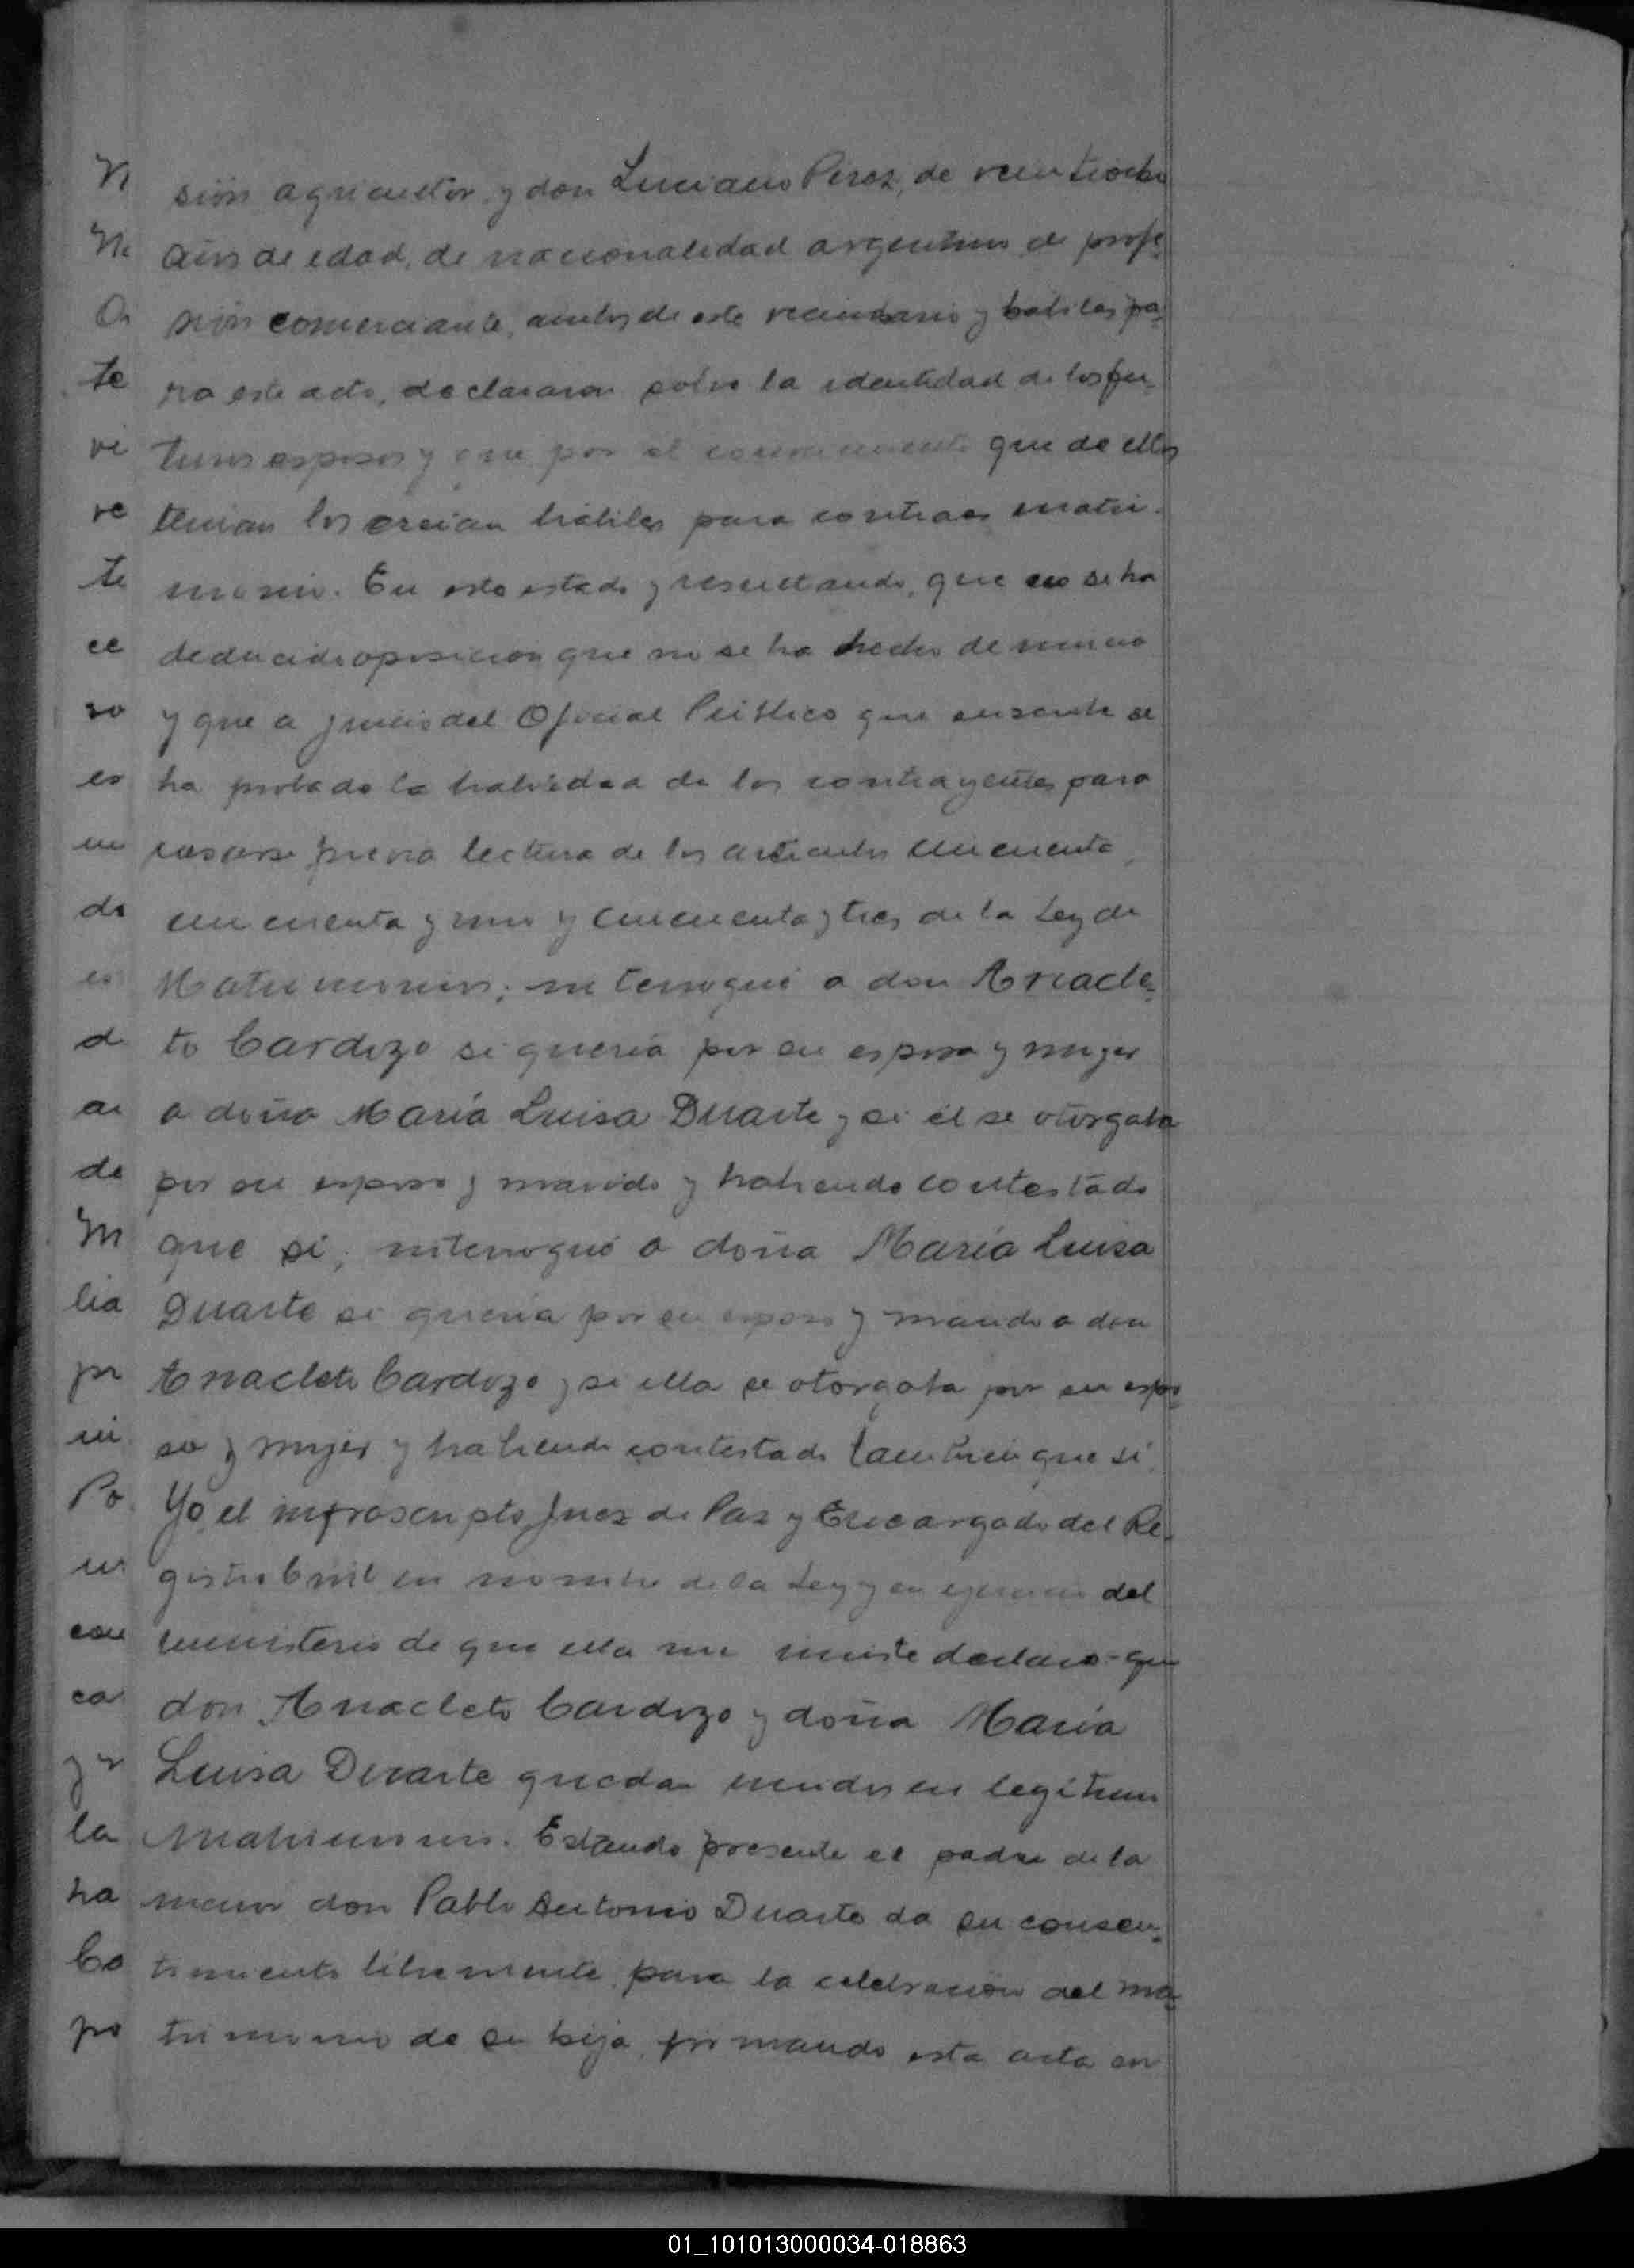 sión agricultor, y don Luciano Perez, de veintiocho
años de edad, de nacionalidad argentino, de profe-
sión comerciante, ambos de este vecindario y habiles pa-
ra este acto, declararon sobre la identidad de los fu-
turos esposos y que por el conocimiento que de ellos
tenian los creian hábiles para contraer matri-
monio. En este estado y resultando, que no se ha
deducido oposicion que no se ha hecho denuncia
y que a juicio del Oficial Público que suscribe se
ha probado la habilidad de los contrayentes para
casarse previa lectura de los articulos cincuenta,
cincuenta y uno y cincuenta y tres de la Ley de
Matrimonio; interrogué a don Anacle-
to Cardozo si quería por su esposa y mujer
a doña María Luisa Duarte y si él se otorgaba
por su esposo y marido y habiendo contestado
que sí, interrogué a doña María Luisa
Duarte si quería por su esposo y marido a don
Anacleto Cardozo y si ella se otorgaba por su espo-
sa y mujer y habiendo contestado tambien que sí.
Yo, el infrascripto Juez de Paz y Encargado del Re-
gistro Civil en nombre de la Ley y en ejercicio del
ministerio de que ella me inviste declaro que
don Anacleto Cardozo y doña María
Luisa Duarte quedan unidos en legítimo
Matrimonio. Estando presente el padre de la
menor don Pablo Antonio Duarte da su consen-
timiento libremente para la celebración del ma-
trimonio de su hija, firmando esta acta con
01_101013000034-018863